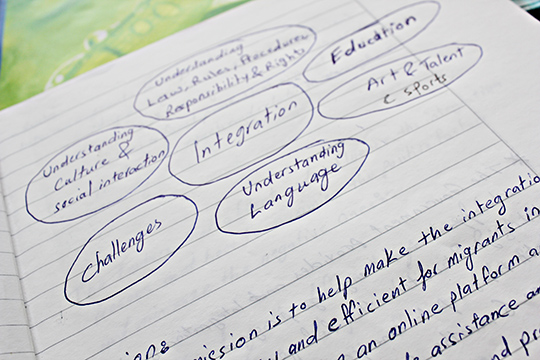 Understanding
Law, Rules, Procedures
Responsibility & Rights
Education
Art & Talent
Sports
Integration
Understanding
Culture &
social interaction
Understanding
Language
Challenges
mission is to help make the integration
and efficient for migrants in
an online platform
assistance
and